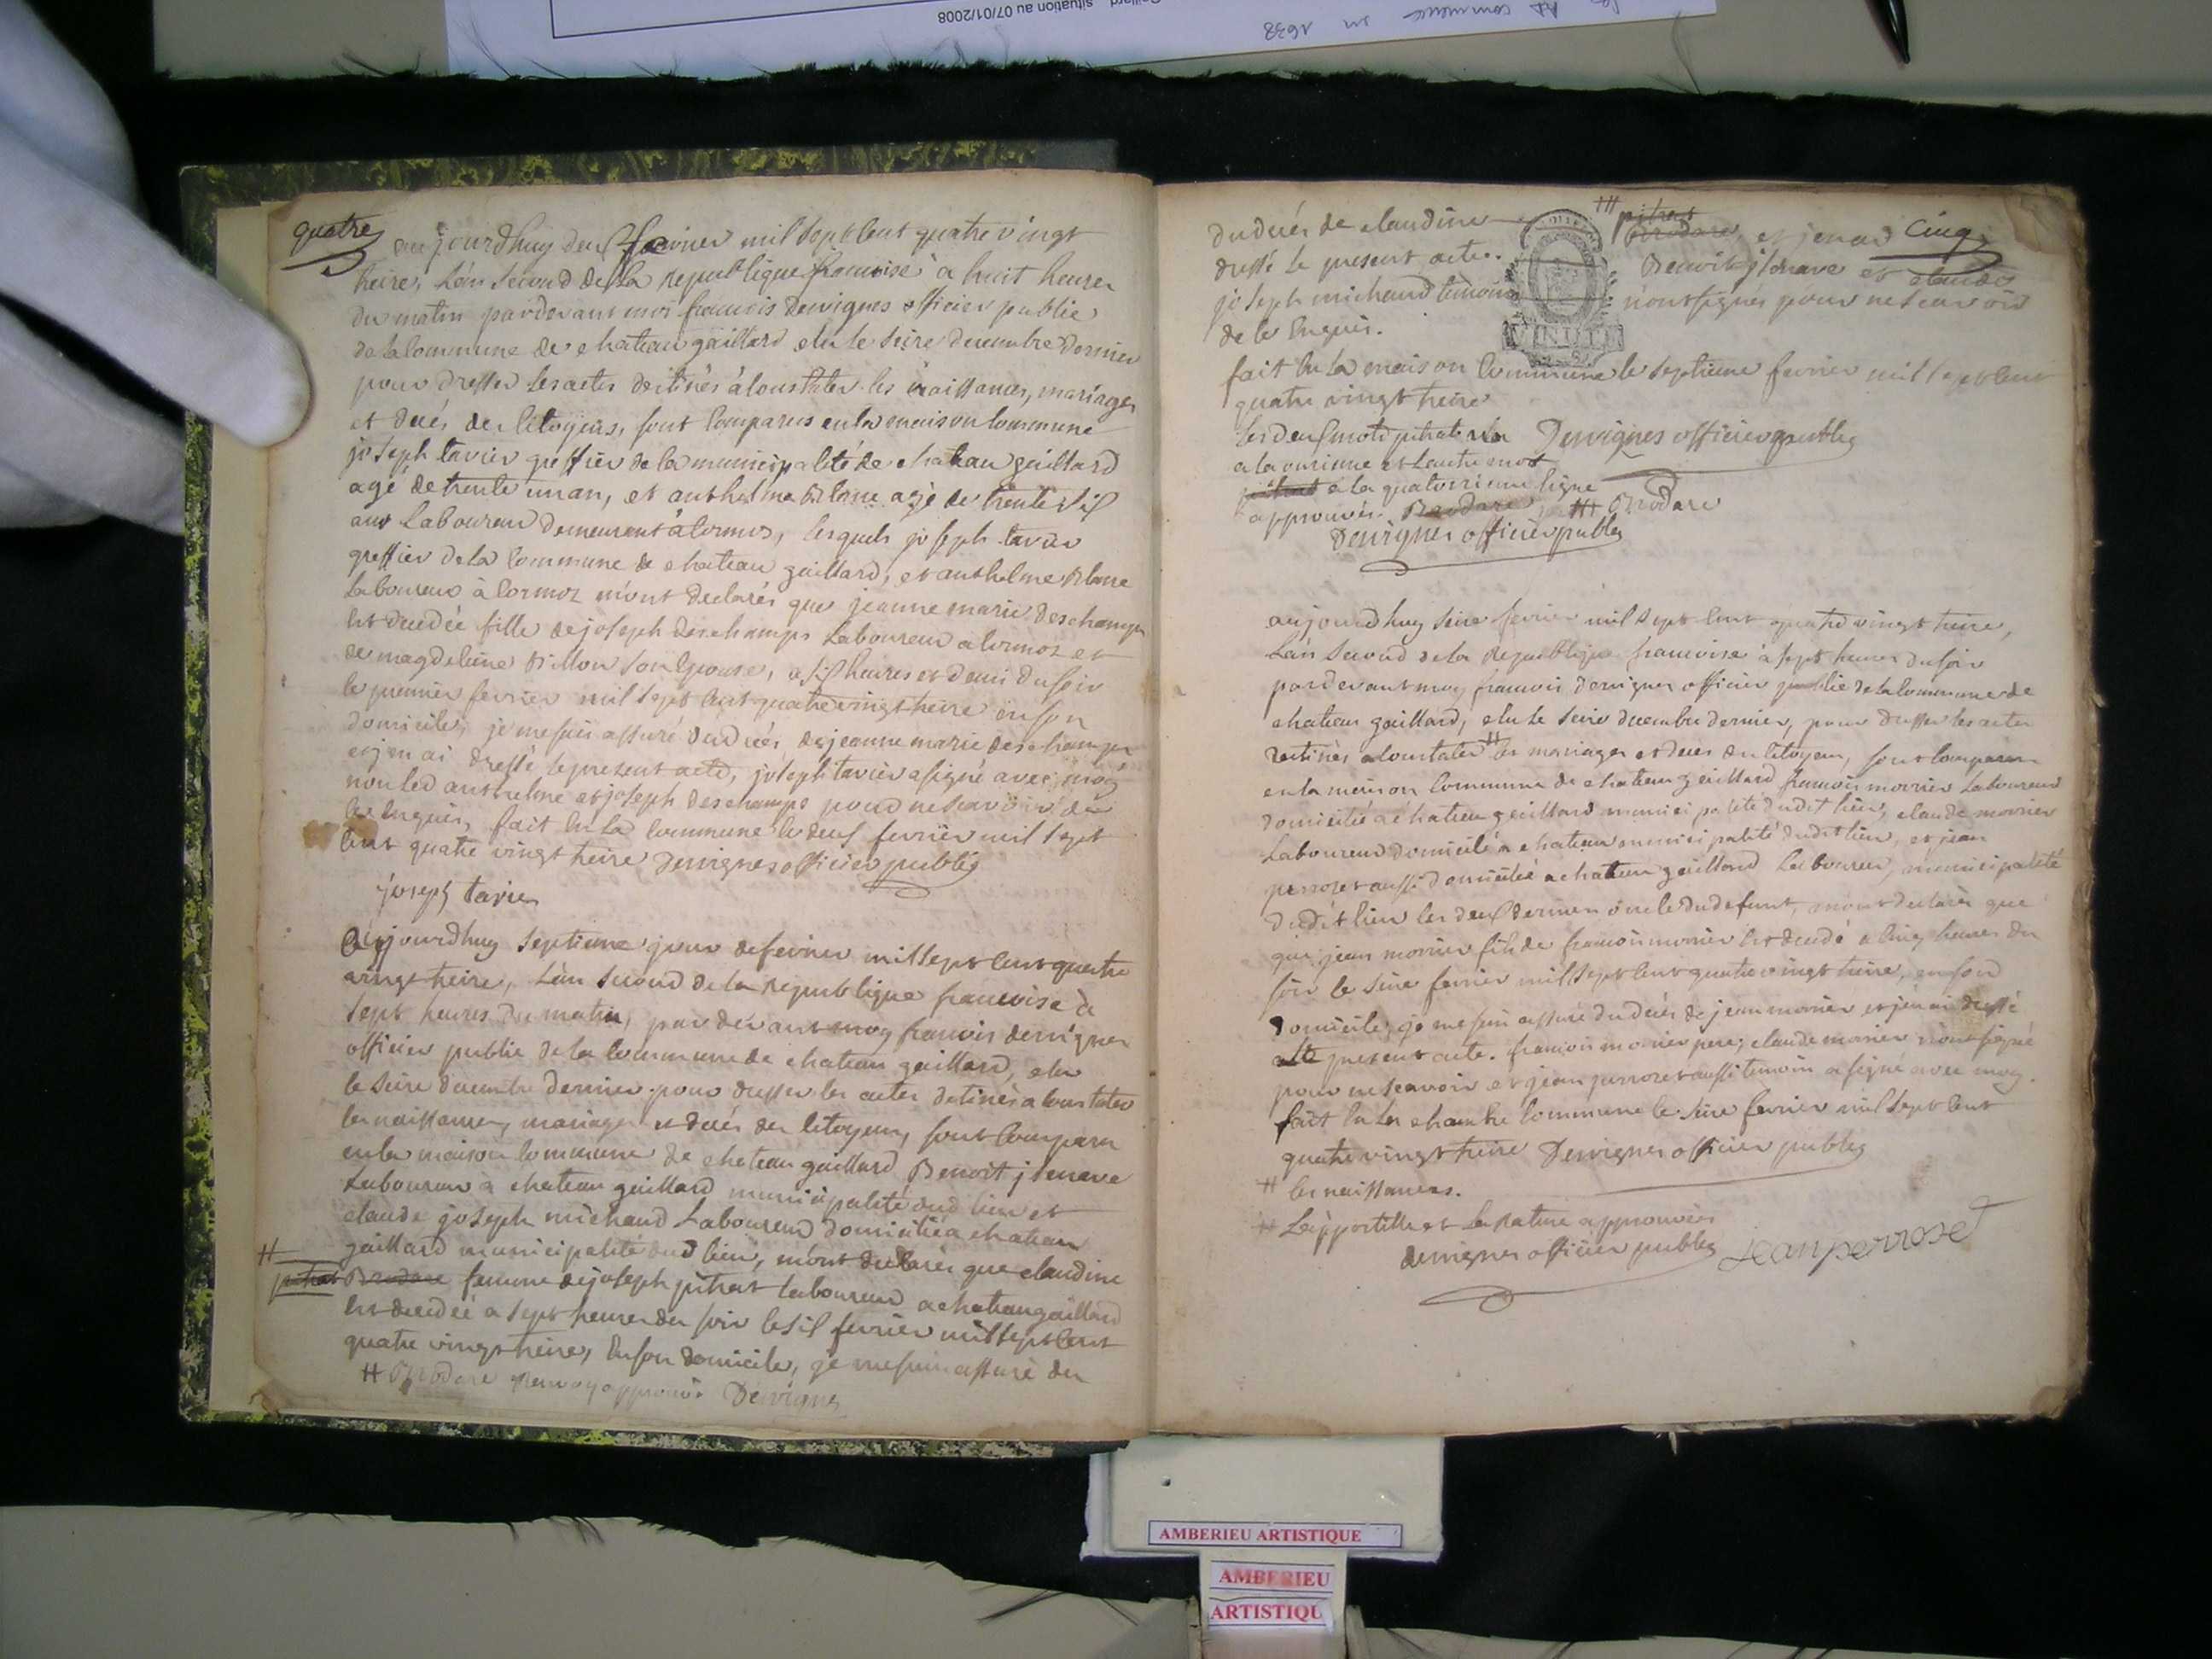 situation au 07/01/2008
commence en 1698
quatre
aujourdhuy deux fevrier mil sept cent quatre vingt
treize, L'an second de la republique francoise à huit heures
du matin pardevant moi francois dervignes officier public
de la Commune de chateau gaillard elu le seize decembre dernier
pour dresser les actes destinés à Constater les naissances, mariages
et decés des Citoyens, sont Comparus en la maison Commune
joseph tavier greffier de la municipalité de chateau gaillard
agé de trente un an, et anthelme Blanc agé de trente six
ans Laboureur demeurant à Cormoz, lesquels joseph tavier
greffier de la Commune de chateau gaillard, et anthelme Blanc
Laboureur à Cormoz m'ont declarés que jeanne marie deschamps
Est decedée fille de joseph deschamps Laboureur a Cormoz et
de magdeleine Billon son Epouse, a six heures et demi du soir
le premier fevrier mil sept Cent quatre vingt treize en son
domicile, je me suis assuré du decés de jeanne marie deschamps
et j'en ai dressé le present acte, joseph tavier a signé avec moy
non led anthelme et joseph deschamps pour ne scavoir de
ce Enquis, fait En la Commune le deux fevrier mil sept
Cent quatre vingt treize dervignes officier public
joseph tavier
Aujourdhuy septieme jour de fevrier mil sept Cent quatre
vingt treize, L'an second de la republique francoise à
sept heures du matin, par devant moy francois dervignes
officier public de la Commune de chateau gaillard, elu
le seize decembre dernier pour dresser les actes detinés a Constater
les naissances, mariages et decés des Citoyens, sont Comparu
en la maison Commune de chateau gaillard Benoit jlenave
Laboureur à chateau gaillard municipalité dud lieu et
claude joseph michaud Laboureur domicilié a chateau
gaillard municipalité dud lieu, m'ont declarés que claudine
pitrat Brodare femme de joseph pitrat Laboureur a chateau gaillard
Est decedée a sept heures du soir le six fevrier mil sept Cent
quatre vingt treize, En son domicile, je me suis assuré du
# Brodare renvoy approuvé Dervignes
cinq
du decés de claudine pitrat Brodare, et j'en ai
dressé le present acte. Benoit jlenave et claude
joseph michaud temoins n'ont signés pour ne scavoir
de ce Enquis.
fait En la maison Commune le septieme fevrier mil sept Cent
quatre vingt treize
les deux mots pitrat Dervignes officier public
a la onzieme et l'autre mot
pitrat a la quatorzieme ligne
approuvés. Brodare # Brodare
Dervignes officier public
aujourdhuy seize fevrier mil sept Cent quatre vingt treize,
L'an second de la Republique francoise à sept heures du soir
pardevant moy francois dervignes officier public de la Commune de
chateau gaillard, elu le seize decembre dernier, pour dresser les actes
destinés a Constater # les mariages et decés des Citoyens, sont Comparu
en la maison Commune de chateau gaillard francois morrier Laboureur
domicilié a chateau gaillard municipalité dudit lieu, claude morrier
Laboureur domicilié a chateau municipalité dudit lieu, et jean
perrozet aussi domicilié a chateau gaillard Laboureur, municipalité
dudit lieu les deux derniers oncle du defunt, m'ont declarés que
que jean morrier fils de francois morrier Est decedé a Cinq heures du
soir le seize fevrier mil sept Cent quatre vingt treize, en son
domicile, je me suis assuré du decés de jean morrier et j'en ai dressé
le present acte. francois morrier pere, claude morrier n'ont signé
pour ne scavoir et jean perrozet aussi temoin a signé avec moy.
fait En la chambre Commune le seize fevrier mil sept Cent
quatre vingt treize Dervignes officier public
# les naissances.
# L'apostille et la rature approuvées
dervignes officier public jean perroset
AMBERIEU ARTISTIQUE
AMBERIEU
ARTISTIQU